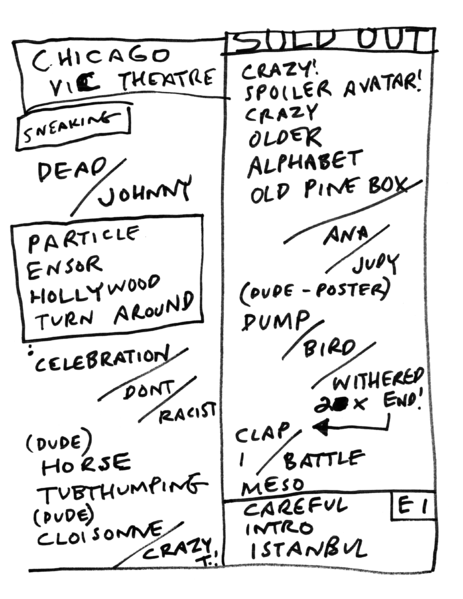 CHICAGO
VIC THEATRE
SNEAKING
DEAD
JOHNNY
PARTICLE
ENSOR
HOLLYWOOD
TURN AROUND
CELEBRATION
DONT
RACIST
(DUDE)
HORSE
TUBTHUMPING
(DUDE)
CLOISONNE
CRAZY
T.!
SOLD OUT
CRAZY!
SPOILER AVATAR!
CRAZY
OLDER
ALPHABET
OLD PINE BOX
ANA
JUDY
(DUDE-POSTER)
DUMP
BIRD
WITHERED
2 X END!
CLAP
I BATTLE
MESO
CAREFUL E1
INTRO
ISTANBUL